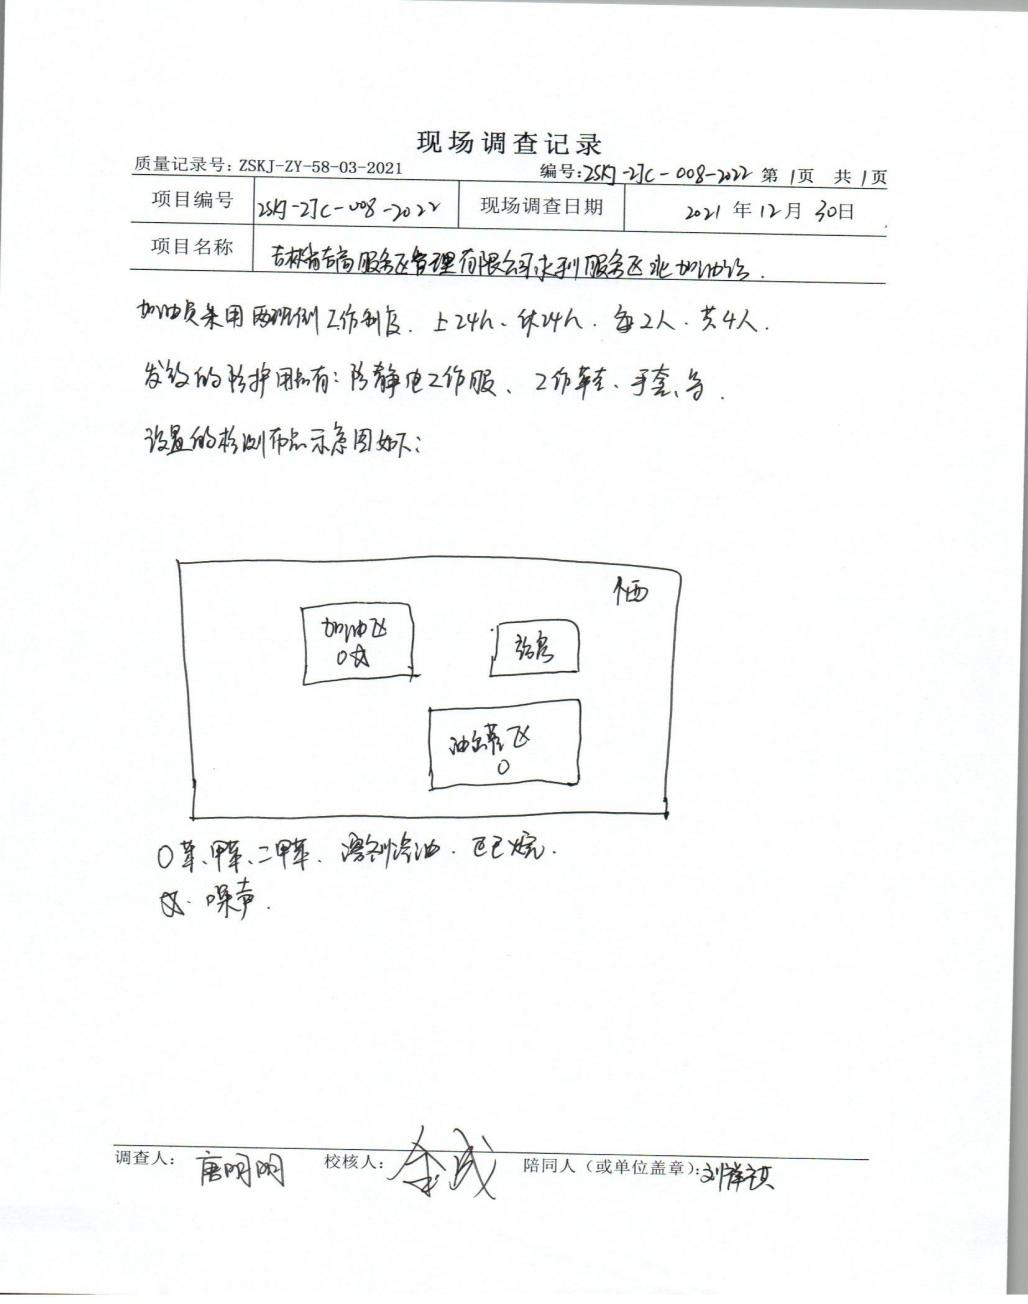 现场调查记录
质量记录号：ZSKJ-ZY-58-03-2021 编号：ZSKJ-ZJC-008-2022 第1页 共1页
项目编号 ZSKJ-ZJC-008-2022 现场调查日期 2021年12月30日
项目名称 吉林省吉高服务区管理有限公司永利服务区北加油站.
加油员采用两班倒工作制度. 上24h、休24h. 每2人. 共4人.
发放的防护用品有：防静电工作服、工作鞋、手套、等.
设置的检测布点示意图如下：
加油区
站房
油罐区
○苯、甲苯、二甲苯、溶剂汽油. 正己烷.
☆. 噪声.
调查人：唐明明 校核人： 陪同人（或单位盖章）：